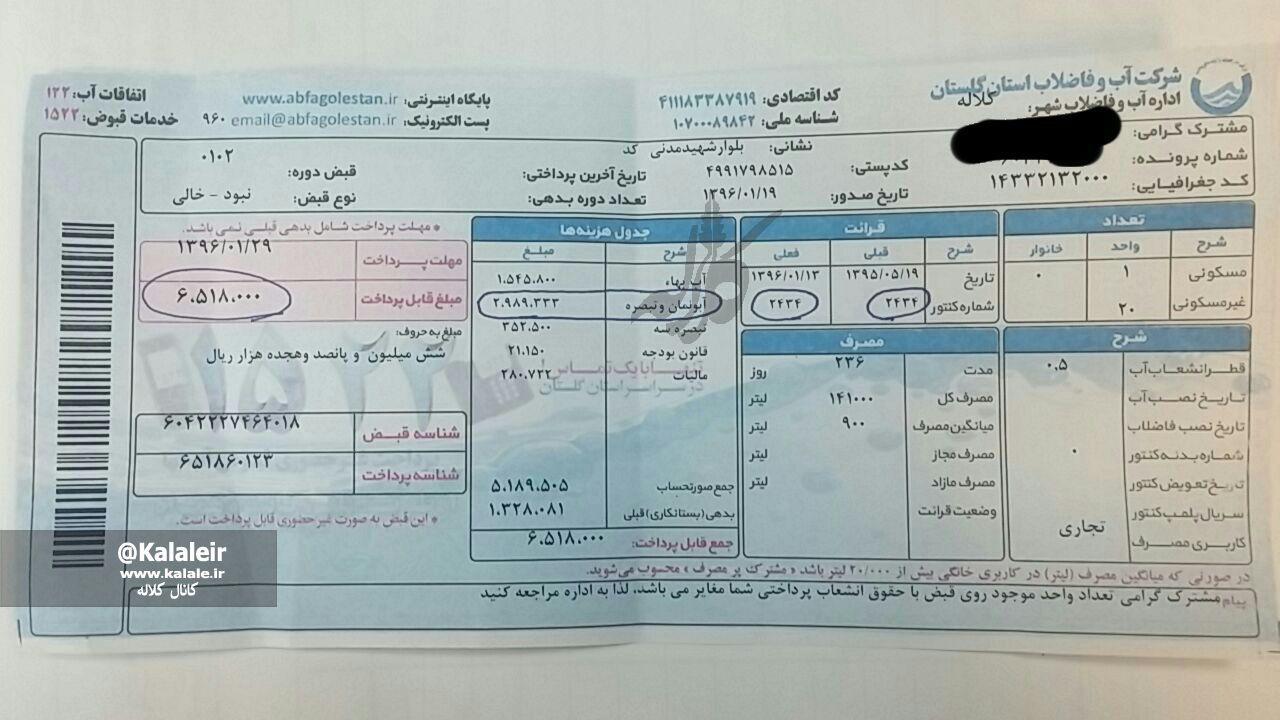 شرکت آب و فاضلاب استان گلستان
اداره آب و فاضلاب شهر: کلاله
کد اقتصادی: ۴۱۱۱۸۳۳۸۷۹۱۹
شناسه ملی: ۱۰۷۰۰۰۸۹۸۴۲
پایگاه اینترنتی: www.abfagolestan.ir
پست الکترونیک: email@abfagolestan.ir ۹۶۰
اتفاقات آب: ۱۲۲
خدمات قبوض: ۱۵۲۲
مشترک گرامی:
شماره پرونده:
کد جغرافیایی: ۱۴۳۳۲۱۳۲۰۰۰
نشانی: بلوار شهیدمدنی کد
کدپستی: ۴۹۹۱۷۹۸۵۱۵
تاریخ صدور: ۱۳۹۶/۰۱/۱۹
تاریخ آخرین پرداختی:
تعداد دوره بدهی:
قبض دوره: ۰۱۰۲
نوع قبض: نبود - خالی
تعداد
شرح واحد خانوار
مسکونی ۱ ۰
غیرمسکونی ۲۰
شرح
قطر انشعاب آب ۰.۵
تاریخ نصب آب
تاریخ نصب فاضلاب
شماره بدنه کنتور ۰
تاریخ تعویض کنتور
سریال پلمپ کنتور
کاربری مصرف تجاری
قرائت
شرح قبلی فعلی
تاریخ ۱۳۹۵/۰۵/۱۹ ۱۳۹۶/۰۱/۱۳
شماره کنتور ۲۴۳۴ ۲۴۳۴
مصرف
مدت ۲۳۶ روز
مصرف کل ۱۴۱۰۰۰ لیتر
میانگین مصرف ۹۰۰ لیتر
مصرف مجاز لیتر
مصرف مازاد لیتر
وضعیت قرائت
جدول هزینه‌ها
شرح مبلغ
آب بهاء ۱.۵۴۵.۸۰۰
آبونمان و تبصره ۲.۹۸۹.۳۳۳
تبصره سه ۳۵۲.۵۰۰
قانون بودجه ۲۱.۱۵۰
مالیات ۲۸۰.۷۲۲
جمع صورتحساب ۵.۱۸۹.۵۰۵
بدهی (بستانکاری) قبلی ۱.۳۲۸.۰۸۱
جمع قابل پرداخت: ۶.۵۱۸.۰۰۰
* مهلت پرداخت شامل بدهی قبلی نمی باشد.
مهلت پرداخت ۱۳۹۶/۰۱/۲۹
مبلغ قابل پرداخت ۶.۵۱۸.۰۰۰
مبلغ به حروف:
شش میلیون و پانصد وهجده هزار ریال
شناسه قبض ۶۰۴۲۲۲۷۴۶۴۰۱۸
شناسه پرداخت ۶۵۱۸۶۰۱۲۳
* این قبض به صورت غیر حضوری قابل پرداخت است.
تنها با یک تماس
در سراسر استان گلستان
۱۵۲۲
در صورتی که میانگین مصرف (لیتر) در کاربری خانگی بیش از ۲۰/۰۰۰ لیتر باشد « مشترک پر مصرف » محسوب می‌شوید.
پیام مشترک گرامی تعداد واحد موجود روی قبض با حقوق انشعاب پرداختی شما مغایر می باشد، لذا به اداره مراجعه کنید
@Kalaleir
www.kalale.ir
کانال کلاله